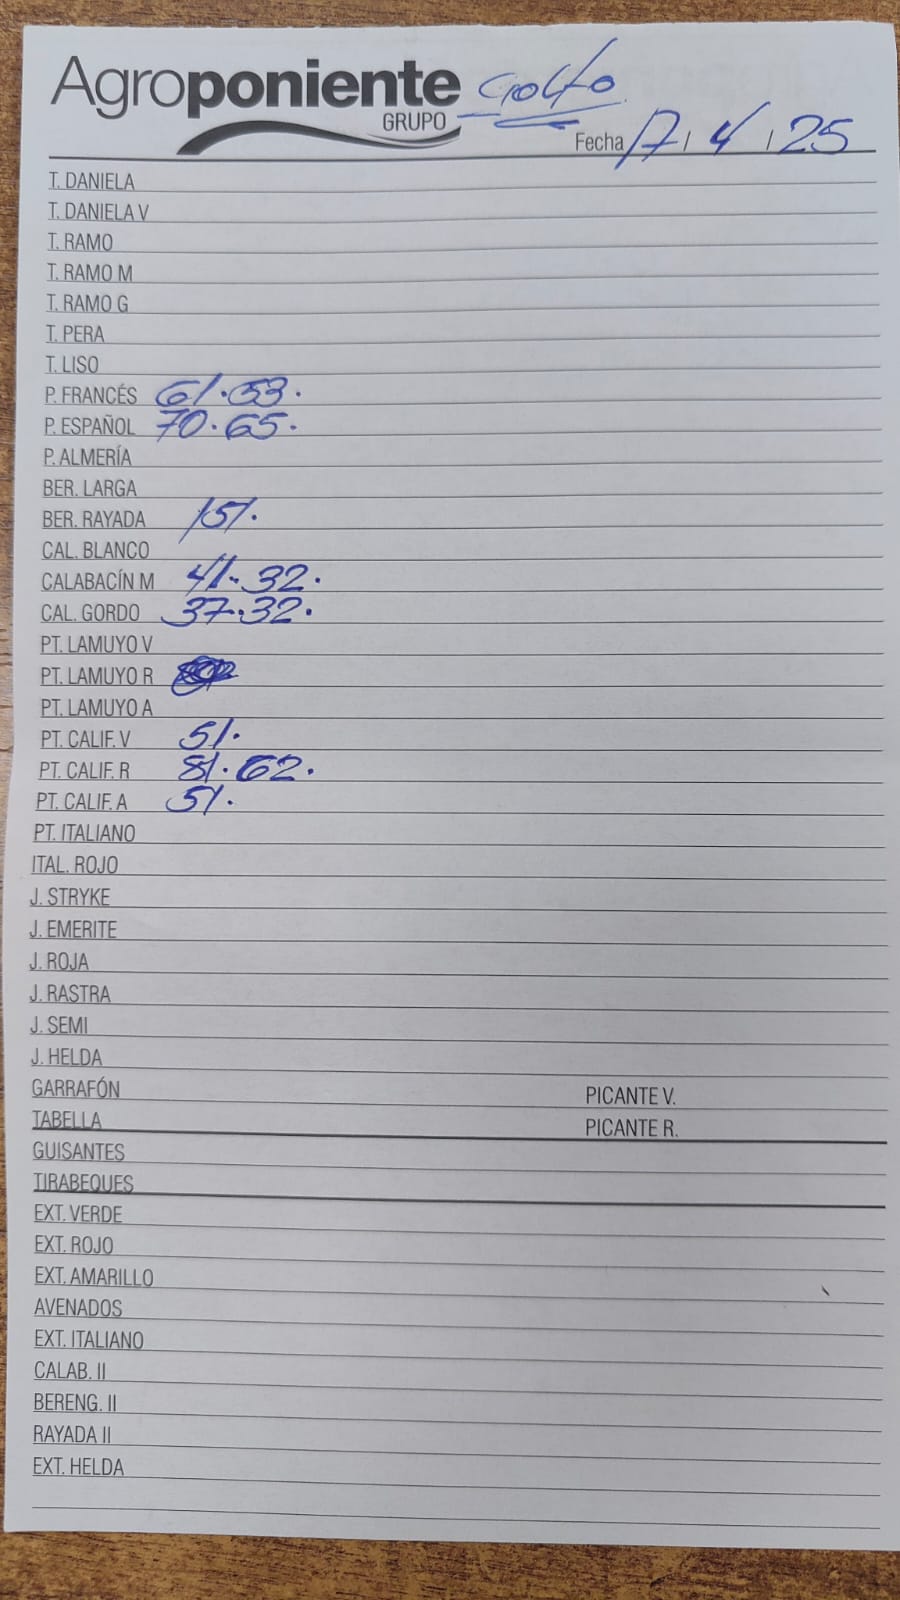 Agroponiente Golfo
GRUPO
Fecha 17 / 4 / 25
T. DANIELA
T. DANIELA V
T. RAMO
T. RAMO M
T. RAMO G
T. PERA
T. LISO
P. FRANCÉS 61. 53.
P. ESPAÑOL 70. 65.
P. ALMERÍA
BER. LARGA
BER. RAYADA 151.
CAL. BLANCO
CALABACÍN M 41. 32.
CAL. GORDO 37. 32.
PT. LAMUYO V
PT. LAMUYO R
PT. LAMUYO A
PT. CALIF. V 51.
PT. CALIF. R 81. 62.
PT. CALIF. A 51.
PT. ITALIANO
ITAL. ROJO
J. STRYKE
J. EMERITE
J. ROJA
J. RASTRA
J. SEMI
J. HELDA
GARRAFÓN PICANTE V.
TABELLA PICANTE R.
GUISANTES
TIRABEQUES
EXT. VERDE
EXT. ROJO
EXT. AMARILLO
AVENADOS
EXT. ITALIANO
CALAB. II
BERENG. II
RAYADA II
EXT. HELDA